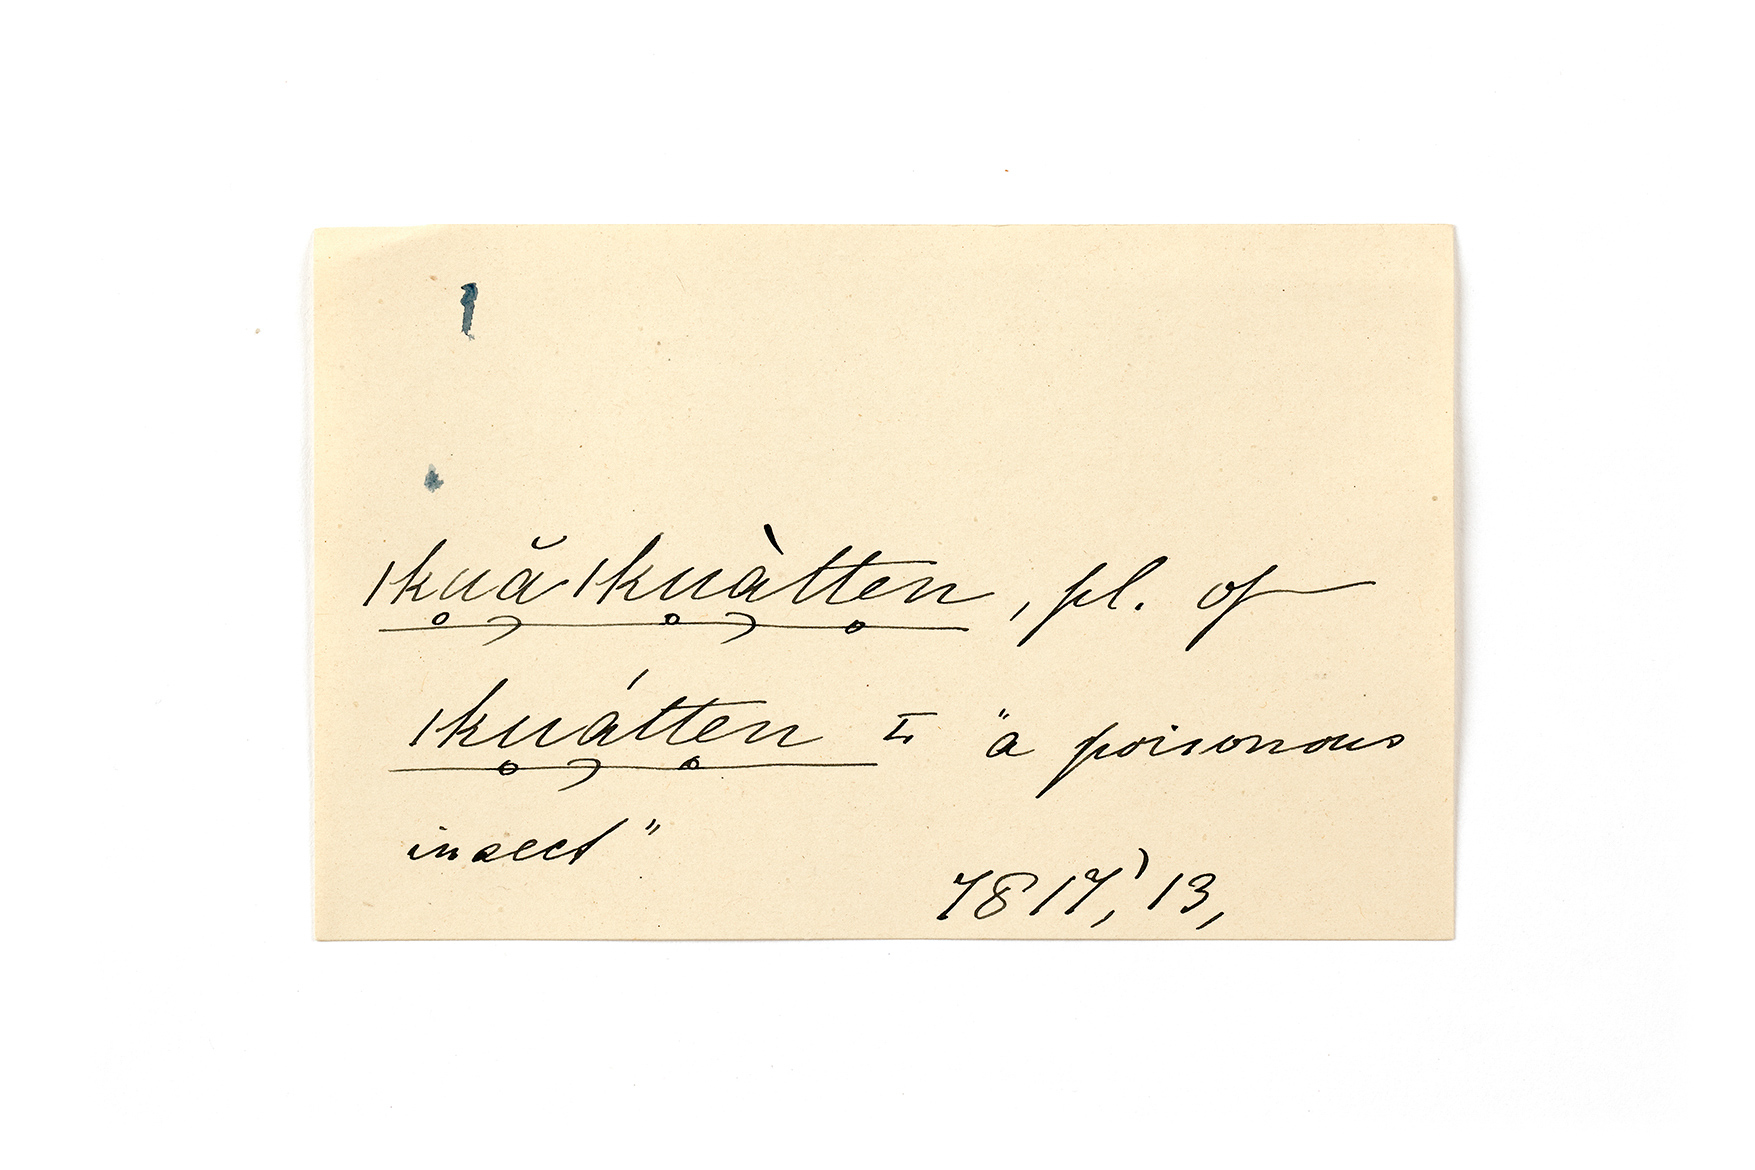 ǀku̥ă̰ ǀku̥à̰tte̥n, pl. of
ǀku̥á̰tte̥n I, "a poisonous
insect"
7817,' 13,